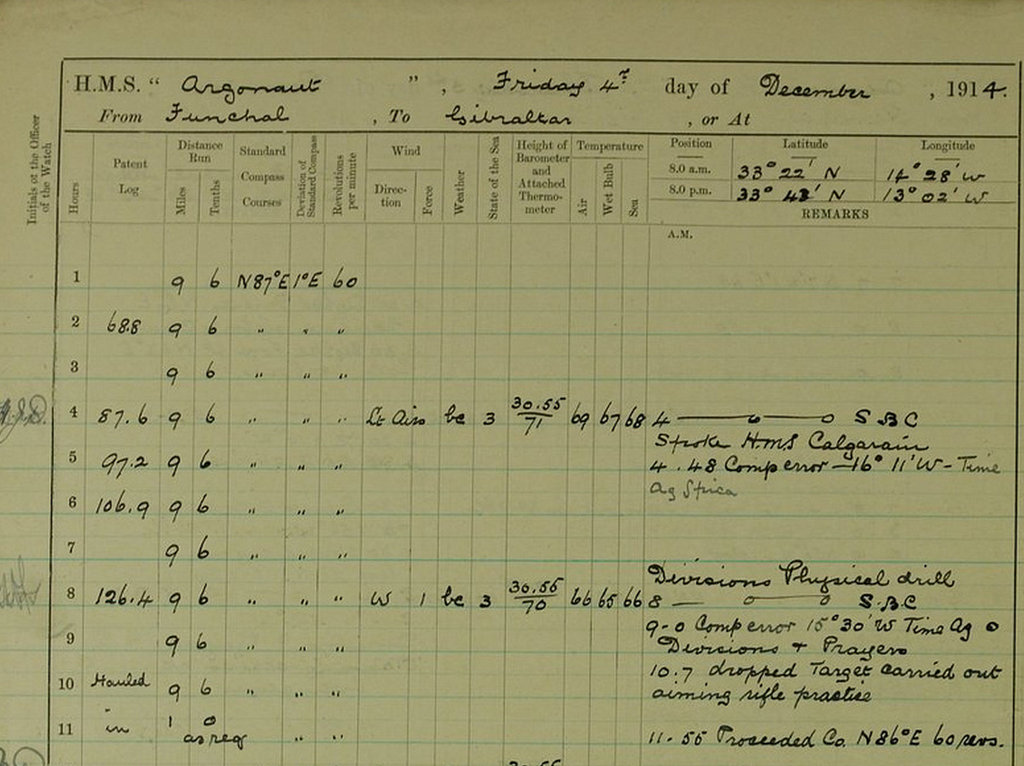 H.M.S. " Argonaut " , Friday 4th day of December , 1914.
From Funchal , To Gibraltar , or At
Initials of the Officer of the Watch
Hours
Patent Log
Distance Run
Miles
Tenths
Standard Compass Courses
Deviation of Standard Compass
Revolutions per minute
Wind
Direction
Force
Weather
State of the Sea
Height of Barometer and Attached Thermometer
Temperature
Air
Wet Bulb
Sea
Position Latitude Longitude
8.0 a.m. 33° 22' N 14° 28' W
8.0 p.m. 33° 43' N 13° 02' W
REMARKS
A.M.
1 9 6 N87°E 1°E 60
2 68.8 9 6 " " "
3 9 6 " " "
4 87.6 9 6 " " " Lt Airs bc 3 30.55/71 69 67 68 4 — o — o S.B.C
Spoke H.M.S Calgarain
5 97.2 9 6 " " " 4.48 Comp error — 16° 11' W - Time
Ag Spica
6 106.9 9 6 " " "
7 9 6 " " "
Divisions Physical drill
8 126.4 9 6 " " " W 1 bc 3 30.55/70 66 65 66 8 — o — o S.B.C
9-0 Comp error 15° 30' W Time Ag o
9 9 6 " " " Divisions + Prayers
10.7 dropped Target carried out
10 Hauled 9 6 " " " aiming rifle practice
11 in 1 0 as req " " 11-55 Proceeded Co. N86°E 60 revs.